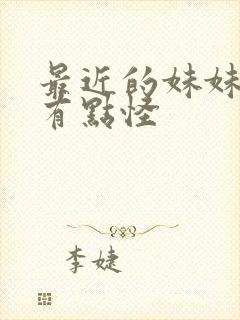 最近的妹妹
有點怪
李婕